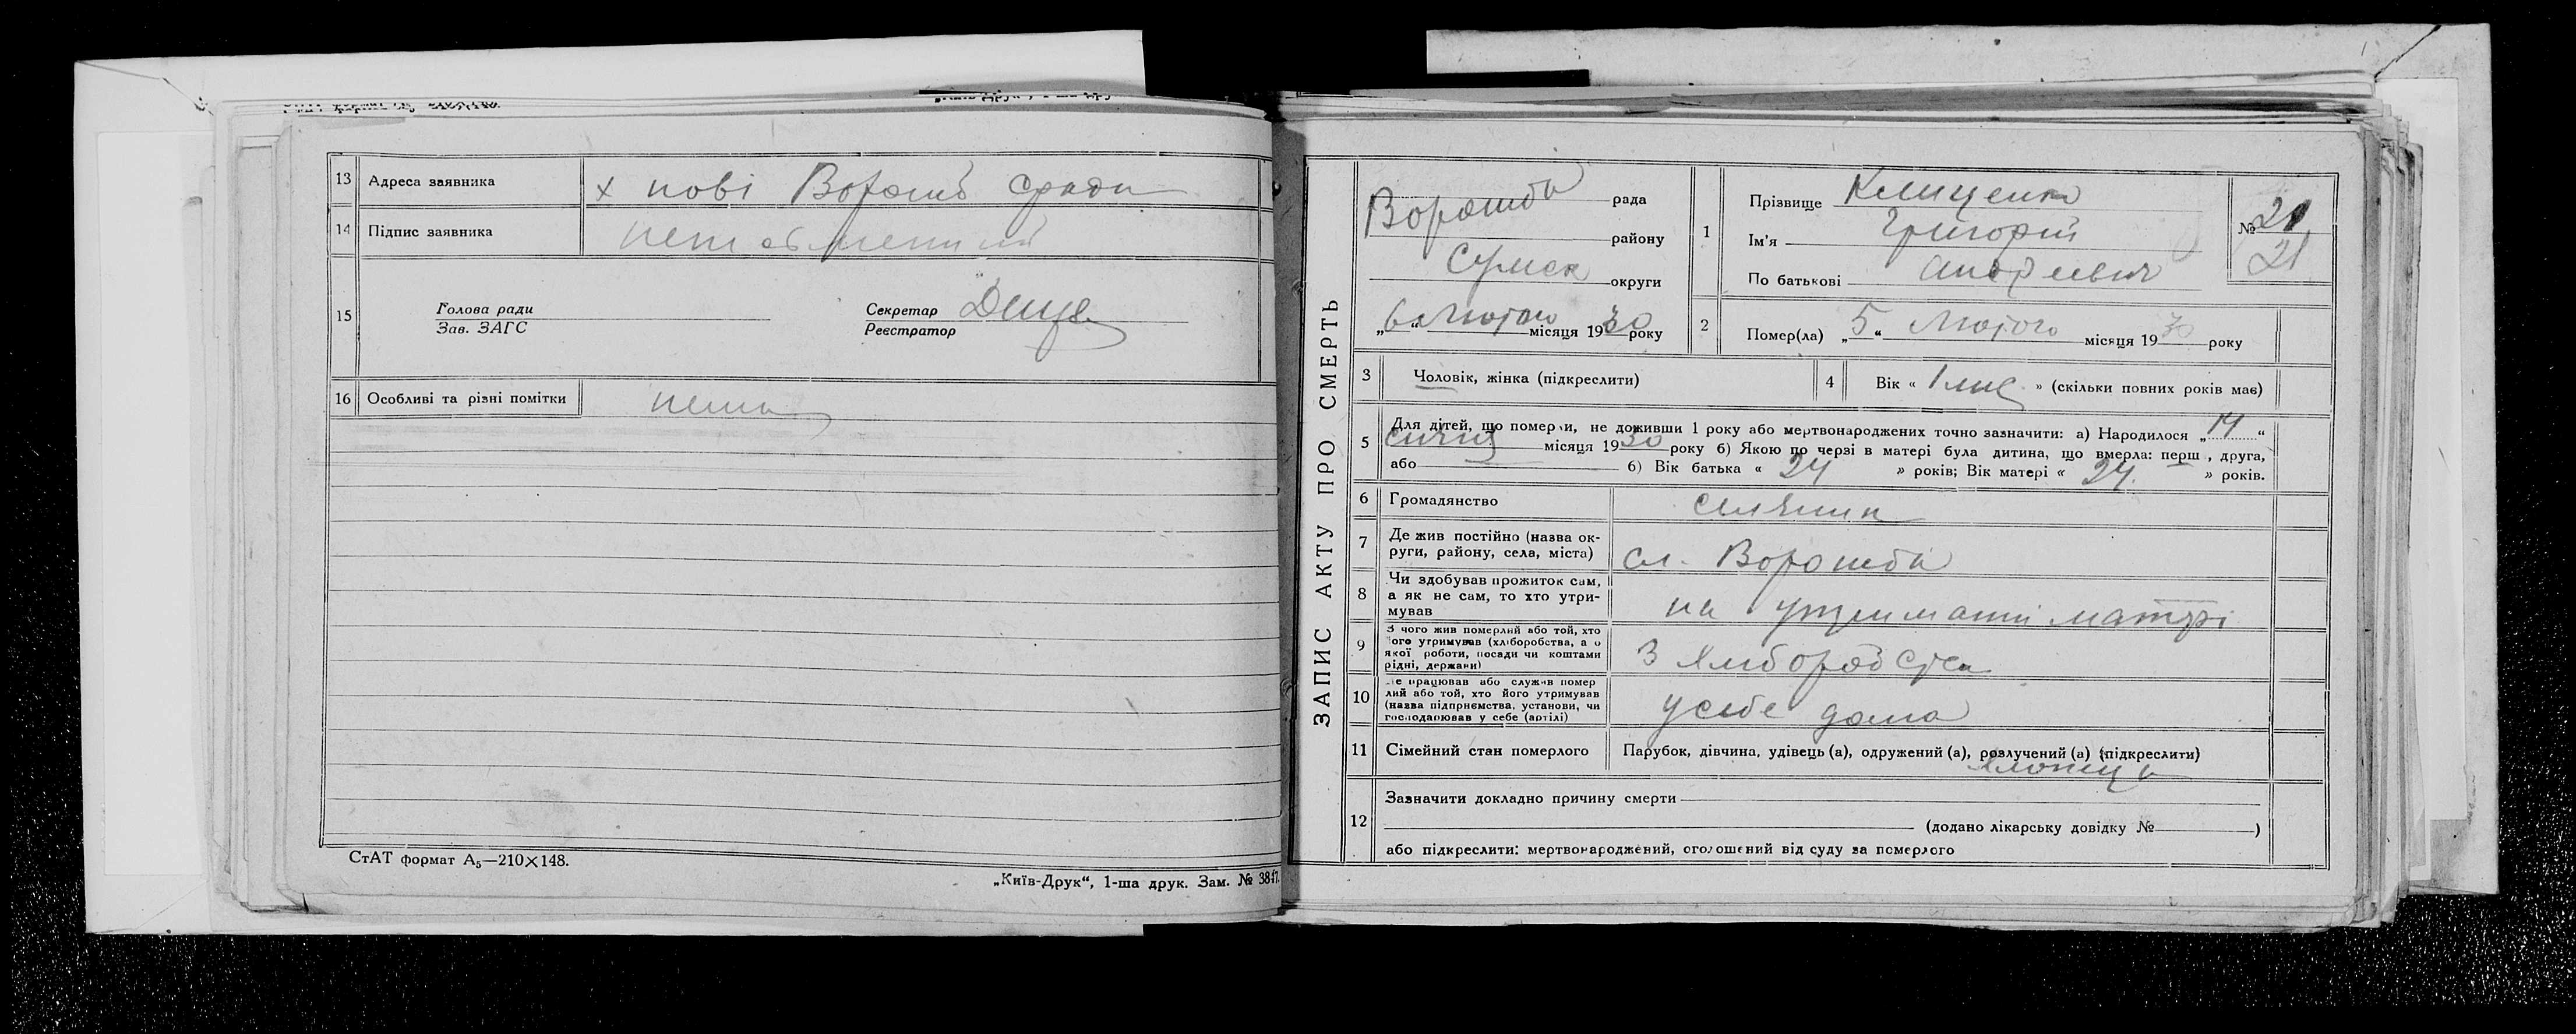 13 Адреса заявника х нові Ворожб
14 Підпис заявника
15 Голова ради
Зав. ЗАГС
Секретар
Реєстратор
16 Особливі та різні помітки нема
СтАТ формат А5—210×148.
„Київ-Друк“, 1-ша друк. Зам. №
ЗАПИС АКТУ ПРО СМЕРТЬ
Ворожба рада
району
Сумск округи
„6“ Лютого місяця 1930 року
1 Прізвище Клищенко
Ім'я Григорій
По батькові Андреевич
№ 21
21
2 Помер(ла) „5“ Лютого місяця 1930 року
3 Чоловік, жінка (підкреслити)
4 Вік « 1 міс » (скільки повних років має)
5 Для дітей, що померли, не доживши 1 року або мертвонароджених точно зазначити: а) Народилося „14“
січня місяця 1930 року б) Якою по черзі в матері була дитина, що вмерла: перш , друга,
або б) Вік батька « 24 » років; Вік матері « 24. » років.
6 Громадянство селянин
7 Де жив постійно (назва ок-
руги, району, села, міста) сл. Ворожба
8 Чи здобував прожиток сам,
а як не сам, то хто утри-
мував на утриманні матері
9 З чого жив померлий або той, хто
ого утримував (хліборобства, а о
якої роботи, посади чи коштами
рідні, держави) З хліборобства
10 е працював або служив помер
лий або той, хто його утримував
(назва підприємства, установи, чи
господарював у себе (артілі) у себе дома
11 Сімейний стан померлого Парубок, дівчина, удівець (а), одружений (а), розлучений (а) (підкреслити)
12 Зазначити докладно причину смерти
(додано лікарську довідку № )
або підкреслити: мертвонароджений, оголошений від суду за померлого